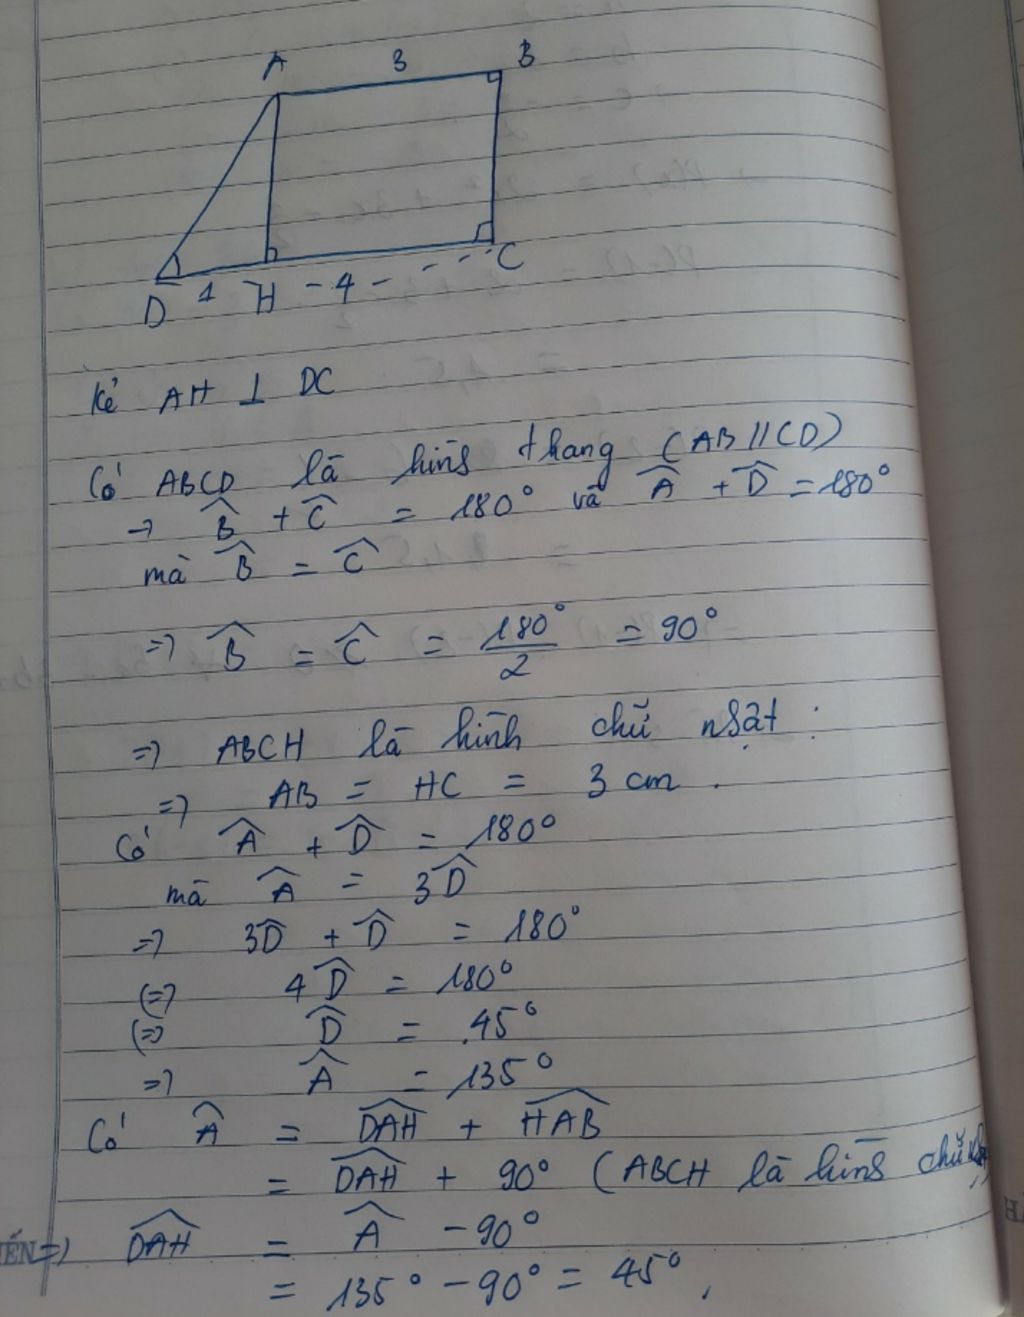 A 3 B
D 1 H - 4 - - - - C
Kẻ AH ⊥ DC
Có ABCD là hình thang (AB // CD)
→ B̂ + Ĉ = 180° và Â + D̂ = 180°
mà B̂ = Ĉ
=> B̂ = Ĉ = 180°/2 = 90°
=> ABCH là hình chữ nhật :
=> AB = HC = 3 cm .
Có Â + D̂ = 180°
mà Â = 3D̂
=> 3D̂ + D̂ = 180°
(=> 4D̂ = 180°
(=> D̂ = 45°
=> Â = 135°
Có Â = DAH + HAB
= DAH + 90° (ABCH là hình chữ
=> DAH = Â - 90°
= 135° - 90° = 45°,